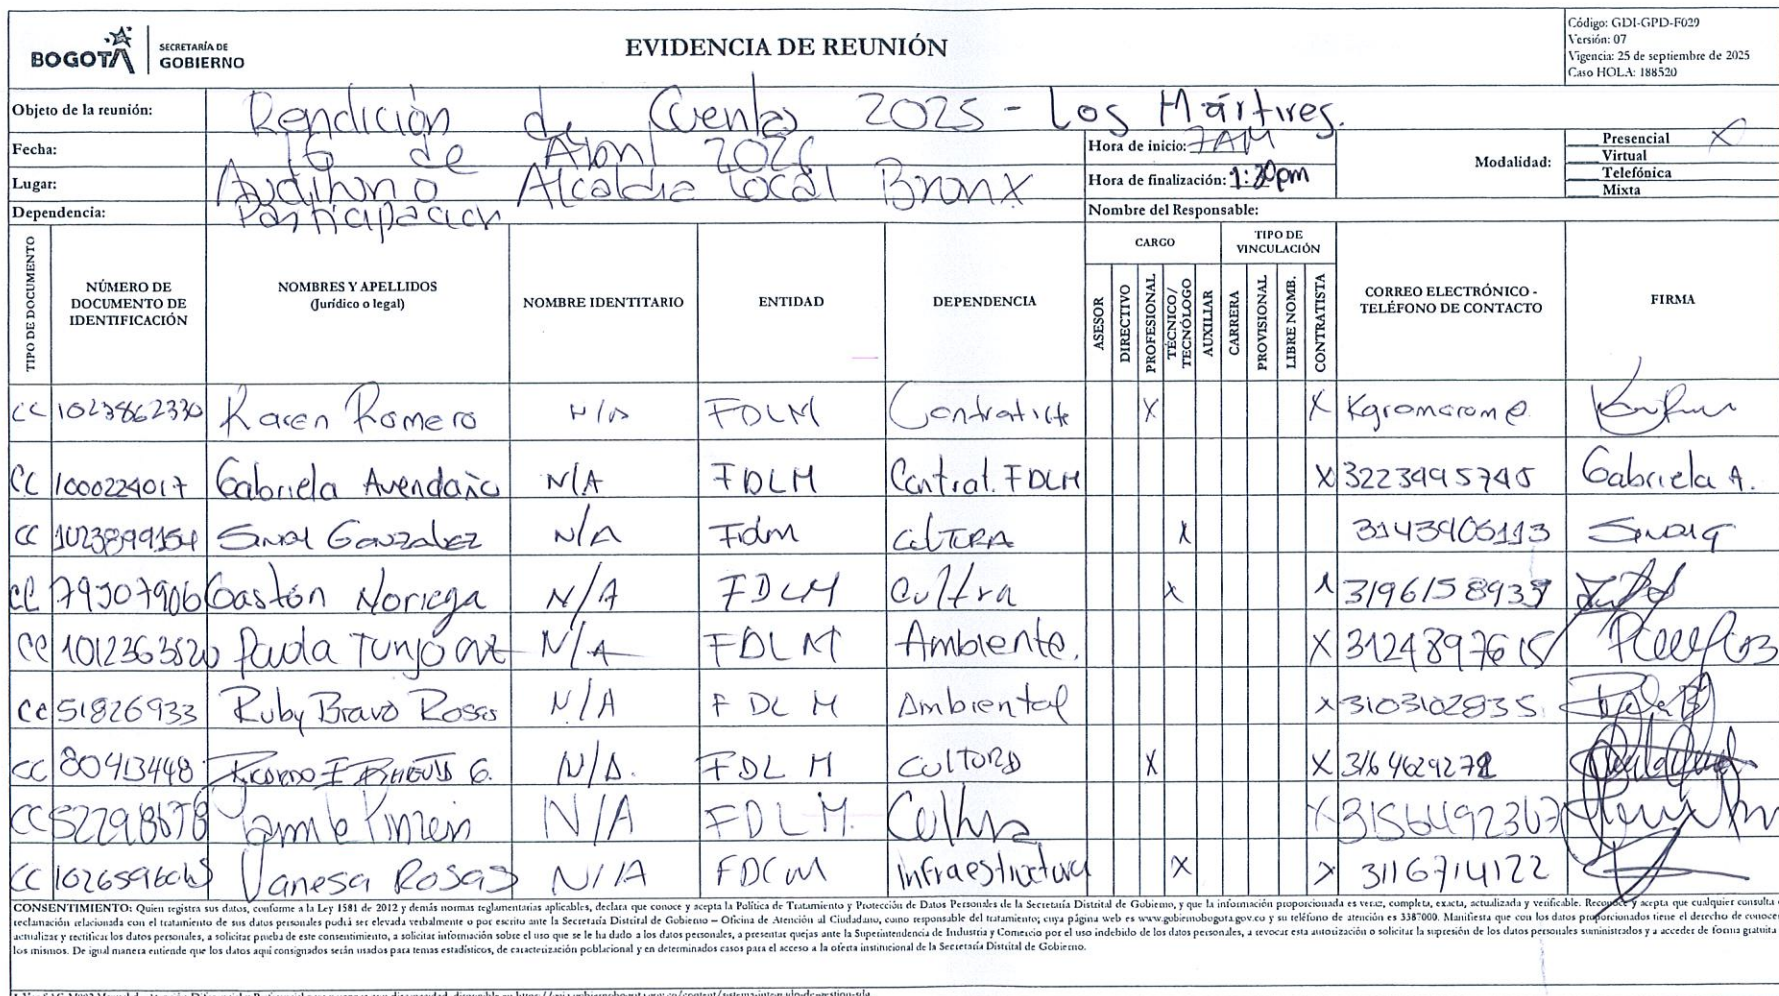 BOGOTÁ
SECRETARÍA DE
GOBIERNO
EVIDENCIA DE REUNIÓN
Código: GDI-GPD-F029
Versión: 07
Vigencia: 25 de septiembre de 2025
Caso HOLA: 188520
Objeto de la reunión: Rendición de Cuentas 2025 - Los Mártires.
Fecha: 16 de Abril 2026
Hora de inicio: 7AM
Lugar: Auditorio Alcaldia Local Bronx
Hora de finalización: 1:30pm
Modalidad:
Presencial X
Virtual
Telefónica
Mixta
Dependencia: Participacion
Nombre del Responsable:
TIPO DE DOCUMENTO
NÚMERO DE DOCUMENTO DE IDENTIFICACIÓN
NOMBRES Y APELLIDOS
(Jurídico o legal)
NOMBRE IDENTITARIO
ENTIDAD
DEPENDENCIA
CARGO
ASESOR
DIRECTIVO
PROFESIONAL
TÉCNICO/ TECNÓLOGO
AUXILIAR
TIPO DE VINCULACIÓN
CARRERA
PROVISIONAL
LIBRE NOMB.
CONTRATISTA
CORREO ELECTRÓNICO - TELÉFONO DE CONTACTO
FIRMA
CC 1023862330 Karen Romero N/A FDLM Contratista X X Kgromerom@
CC 1000224017 Gabriela Avendaño N/A FDLM Contrat. FDLM X 3223995745 Gabriela A.
CC 1023899154 Gonzalez N/A Fdlm CULTURA X 3143905113
CC 79307906 Gastón Noriega N/A FDLM Cultura X X
CC 1012363520 Paola Tunjo N/A FDLM Ambiente. X 3124897615
CC 51826933 Ruby Bravo Rosas N/A FDLM Ambiental X 3103102835
CC 80413448 N/A. FDLM CULTURA X X
CC 52298678 Pinzon N/A FDLM. Cultura X
CC Vanesa Rosas N/A FDLM infraestructura X X 3116714122
CONSENTIMIENTO: Quien registra sus datos, conforme a la Ley 1581 de 2012 y demás normas reglamentarias aplicables, declara que conoce y acepta la Política de Tratamiento y Protección de Datos Personales de la Secretaría Distrital de Gobierno, y que la información proporcionada es veraz, completa, exacta, actualizada y verificable. Reconoce y acepta que cualquier consulta o
reclamación relacionada con el tratamiento de sus datos personales podrá ser elevada verbalmente o por escrito ante la Secretaría Distrital de Gobierno – Oficina de Atención al Ciudadano, como responsable del tratamiento; cuya página web es www.gobiernobogota.gov.co y su teléfono de atención es 3387000. Manifiesta que con los datos proporcionados tiene el derecho de conocer,
actualizar y rectificar los datos personales, a solicitar prueba de este consentimiento, a solicitar información sobre el uso que se le ha dado a los datos personales, a presentar quejas ante la Superintendencia de Industria y Comercio por el uso indebido de los datos personales, a revocar esta autorización o solicitar la supresión de los datos personales suministrados y a acceder de forma gratuita
los mismos. De igual manera entiende que los datos aquí consignados serán usados para temas estadísticos, de caracterización poblacional y en determinados casos para el acceso a la oferta institucional de la Secretaría Distrital de Gobierno.